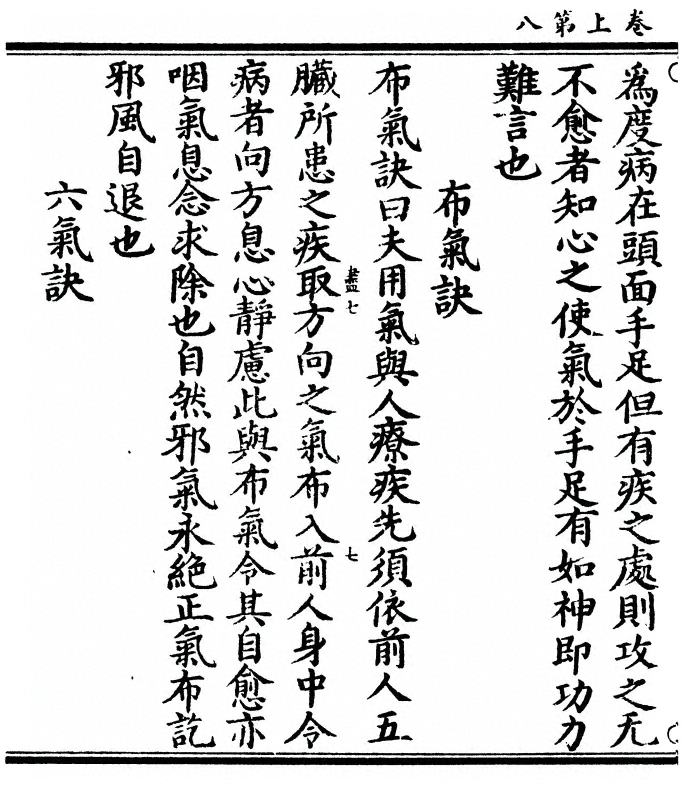 卷上第八
為度病在頭面手足但有疾之處則攻之无
不愈者知心之使氣於手足有如神即功力
難言也
布氣訣
布氣訣曰夫用氣與人療疾先須依前人五
臟所患之疾取方向之氣布入前人身中令
病者向方息心靜慮此與布氣令其自愈亦
咽氣息念求除也自然邪氣永絕正氣布訖
邪風自退也
六氣訣
盡七
七